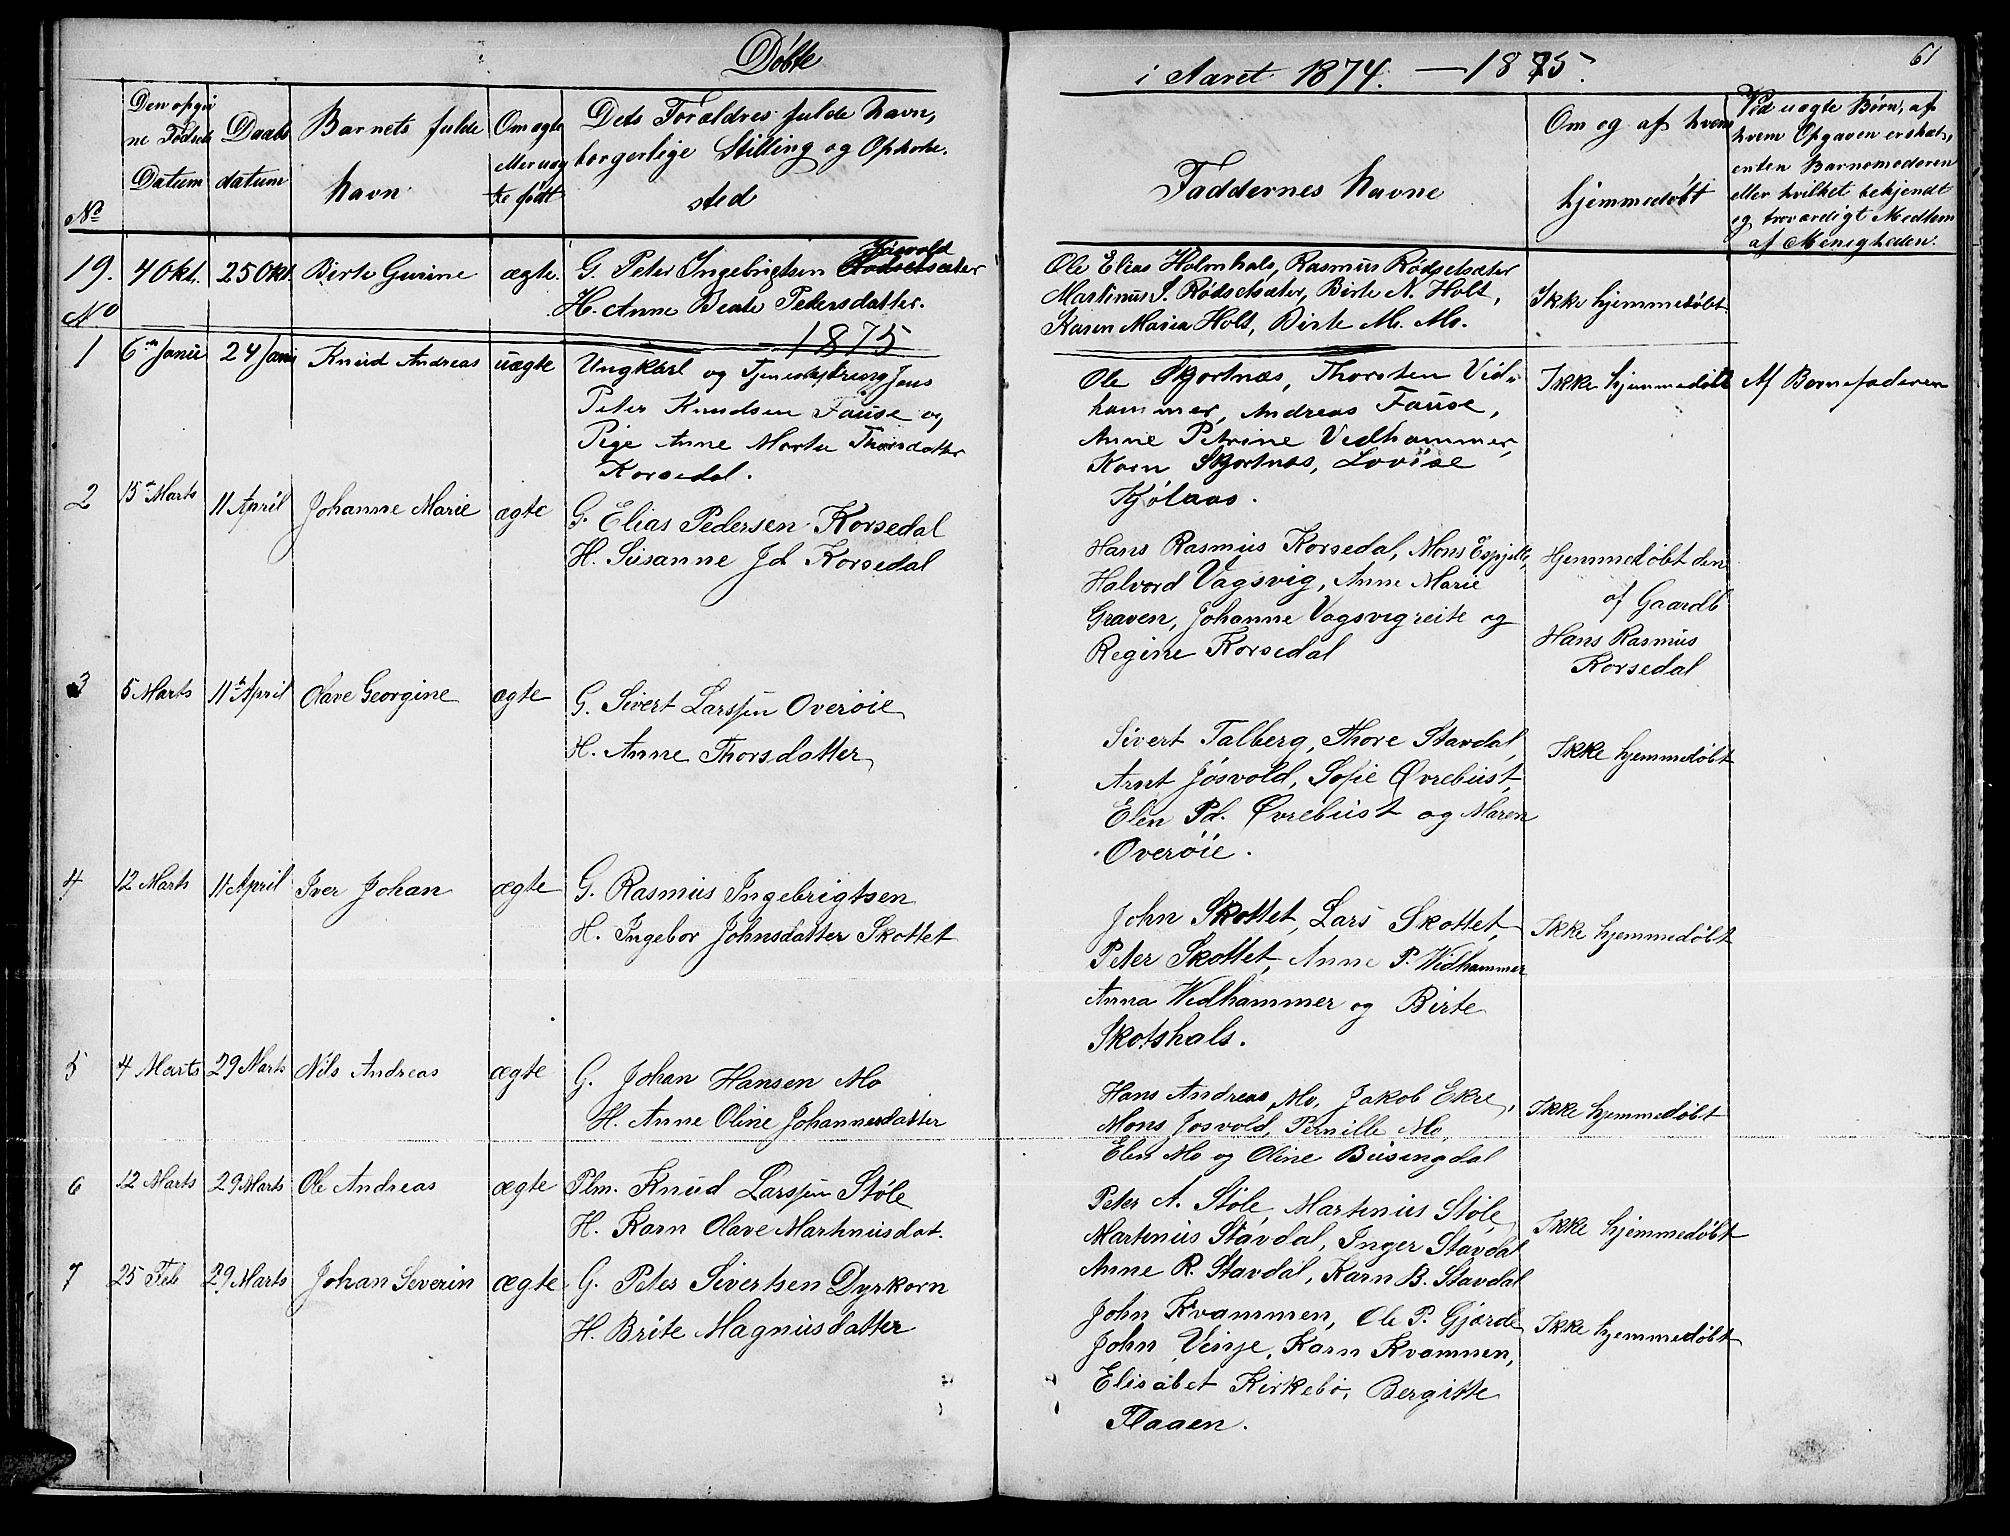 Døbte
i Aaret 1874. — 1875.
61
No
Den opgiv
ne Fødsels
Datum
Daabs
datum
Barnets fulde
Navn
Om ægte
eller uæg
te født
Dets Forældres fulde Navn,
borgerlige Stilling og Opholds
sted
Faddernes Navne
Om og af hvem
hjemmedøbt
Ved uægte Børn, af
hvem Opgaven er skeet,
enten Barnemoderen
eller hvilket bekjendt
og troværdigt Medlem
af Menigheden.
19. 4 Okt. 25 Okt. Birte Gurine ægte. G. Peter Ingebrigtsen Jøsvold
H. Anne Beate Pedersdatter.
Ole Elias Holmhals, Rasmus Rødsetsæter
Martinus S. Rødsetsæter, Birte N. Holt,
Karen Maria Holt, Birte M. Mo.
Ikke hjemmedøbt
No
1875
1 6te Janu 24 Janu Knud Andreas uægte Ungkarl og Tjenestedreng Jens
Peter Knudsen Fause og
Pige Anne Marta Thorsdatter
Korsedal.
Ole Skjortnæs, Thorsten Vid-
hammer, Andreas Fause,
Anne Petrine Vedhammer,
Karn Skjortnæs, Lovise
Kjølaas.
Ikke hjemmedøbt
Af Barnefaderen
2 15de Marts 11 April Johanne Marie ægte G. Elias Pedersen Korsedal
H. Susanne Jd Korsedal
Hans Rasmus Korsedal, Mons
Halvord Vagsvig, Anne Marie
Graven, Johanne Vagsvigreite og
Regine Korsedal
Hjemmedøbt den
af Gaardb
Hans Rasmus
Korsedal
3 5 Marts 11te April Olave Georgine ægte G. Sivert Larssen Overøie
H. Anne Thorsdatter
Sivert Talberg, Thore Stavdal
Arnt Jøsvold, Sofie Øvrebust,
Elen Pd. Øvrebust og Maren
Overøie.
Ikke hjemmedøbt
4 12 Marts 11 April Iver Johan ægte G. Rasmus Ingebrigtsen
H. Ingebor Johnsdatter Skottet
John Skottet, Lars Skottet,
Peter Skottet, Anne P. Widhammer
Anna Wedhammer og Birte
Skotshals.
Ikke hjemmedøbt
5 4 Marts 29 Marts Nils Andreas ægte G. Johan Hansen Mo
H. Anne Oline Johannesdatter
Hans Andreas Mo, Jakob Ekre,
Mons Josvold, Pernille Mo,
Elen Mo og Oline Busengdal
Ikke hjemmedøbt
6 12 Marts 29 Marts Ole Andreas ægte Plm. Knud Larssen Støle
H. Karn Olave Martinusdat.
Peter A. Støle, Martinus Støle,
Martinus Stavdal, Inger Stavdal
Anne R. Stavdal, Karn B. Stavdal
Ikke hjemmedøbt
7 25 Feb 29 Marts Johan Severin ægte G. Peter Sivertsen Dyrkorn
H. Brite Magnusdatter
John Kvammen, Ole P. Gjærde
John Vinje, Karn Kvamnen,
Elisabet Kirkebø, Bergitte
Flaaen.
Ikke hjemmedøbt